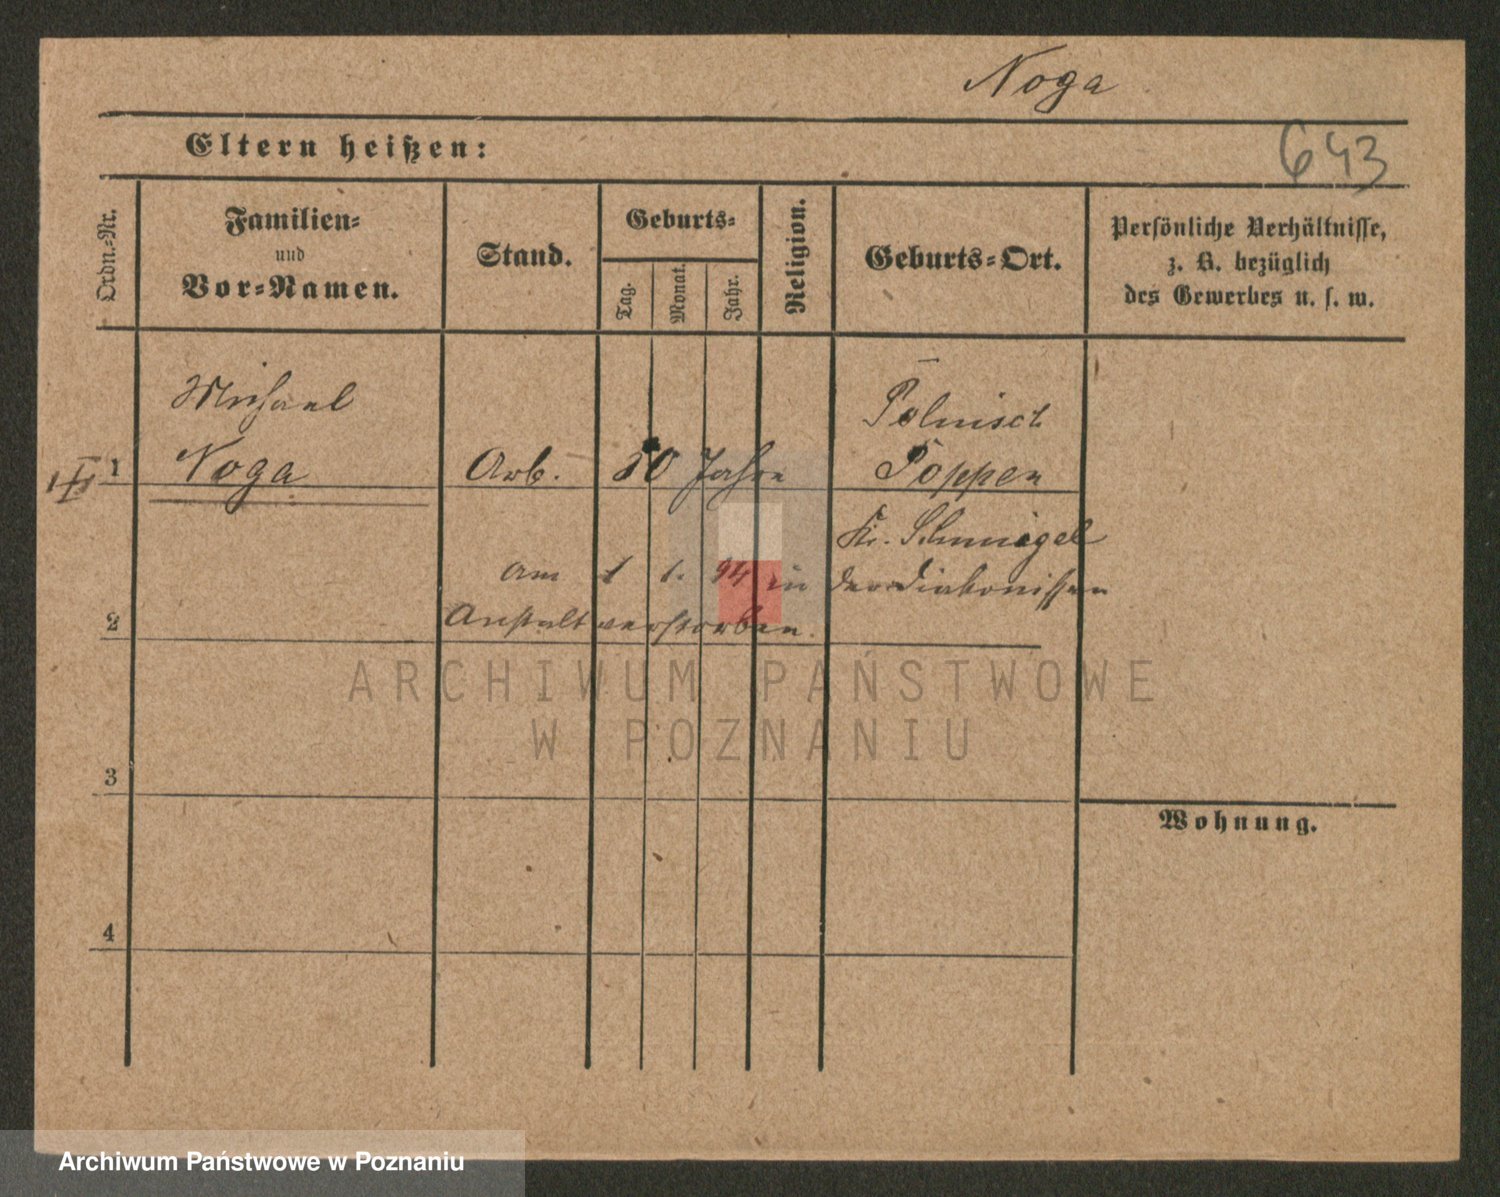 Noga
643
Eltern heißen:
Ordn.=Nr.
Familien=
und
Vor=Namen.
Stand.
Geburts=
Tag.
Monat.
Jahr.
Religion.
Geburts=Ort.
Persönliche Verhältnisse,
z. B. bezüglich
des Gewerbes u. s. w.
Michael
Polnisch
1 Noga Arb. 50 Jahre Poppen
Kr. Schmiegel
am 1 1. 94 in der Diakonissen
2 Anstalt verstorben.
ARCHIWUM PAŃSTWOWE
W POZNANIU
3
Wohnung.
4
Archiwum Państwowe w Poznaniu